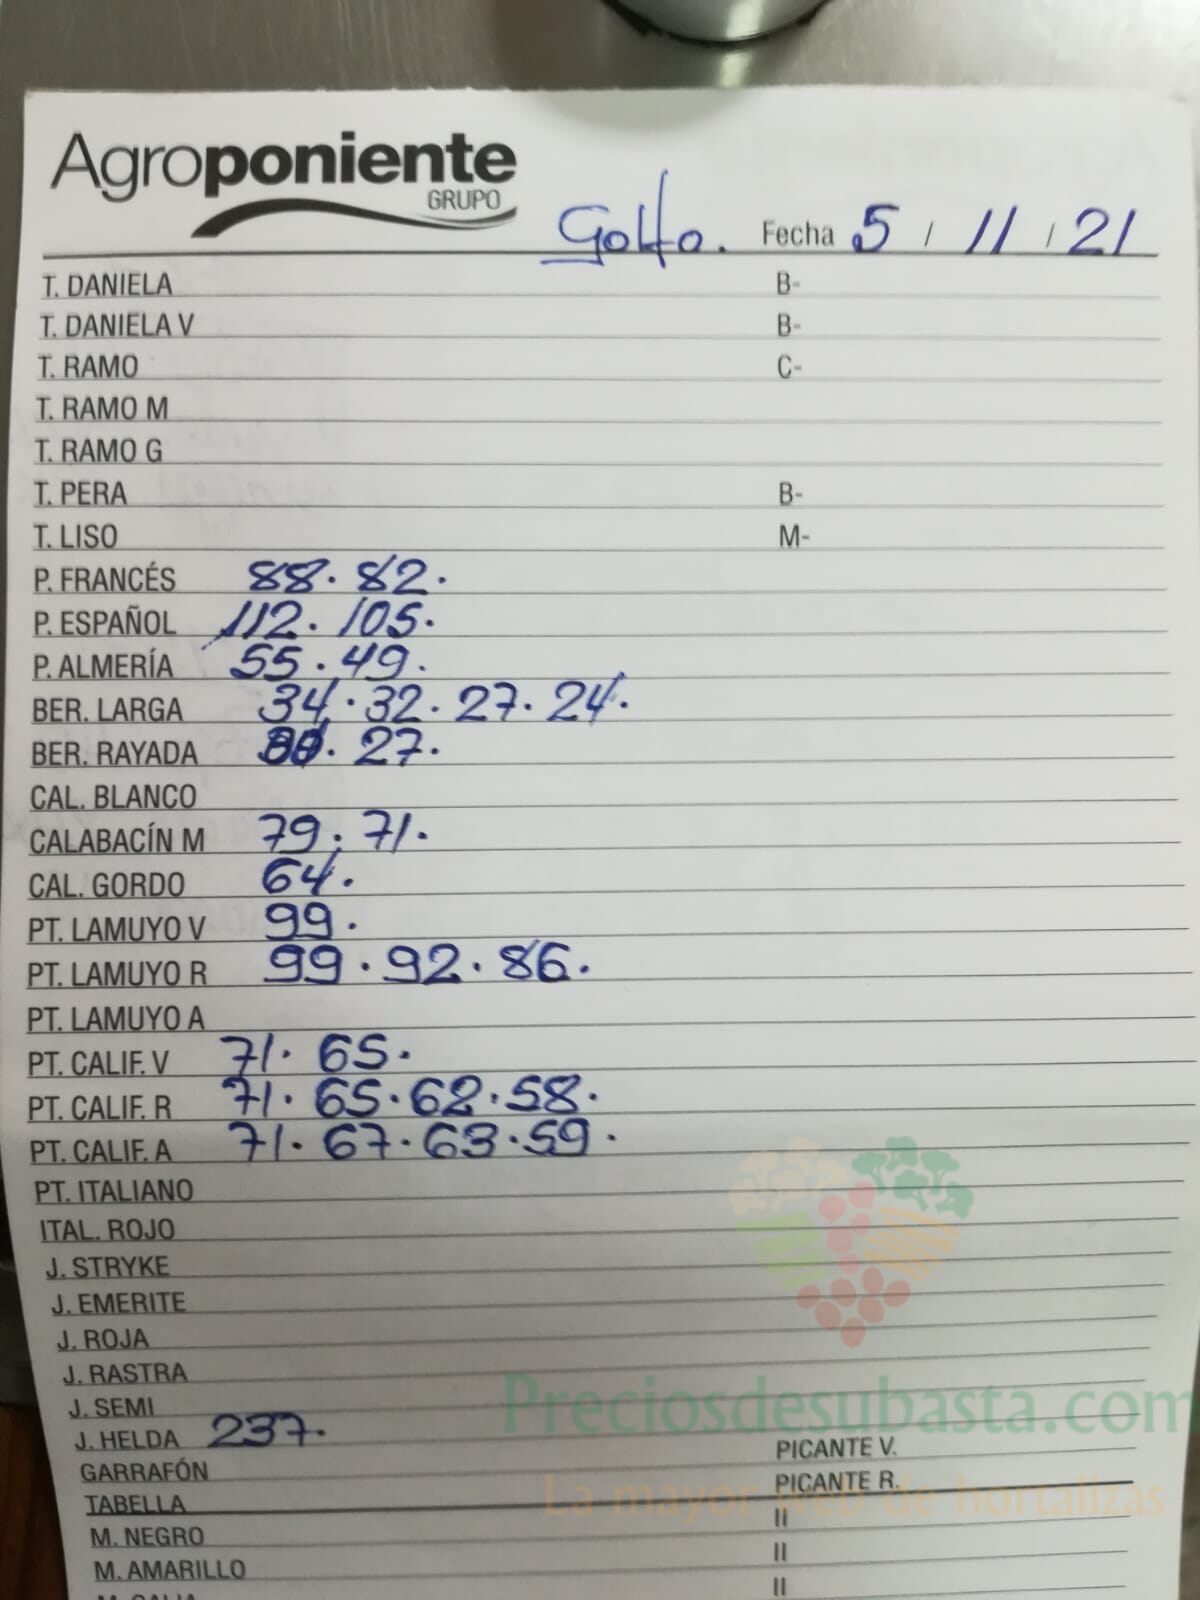 Agroponiente
GRUPO
Golfo. Fecha 5 / 11 / 21
T. DANIELA B-
T. DANIELA V B-
T. RAMO C-
T. RAMO M
T. RAMO G
T. PERA B-
T. LISO M-
P. FRANCÉS 88. 82.
P. ESPAÑOL 112. 105.
P. ALMERÍA 55. 49.
BER. LARGA 34. 32. 27. 24.
BER. RAYADA 27.
CAL. BLANCO
CALABACÍN M 79. 71.
CAL. GORDO 64.
PT. LAMUYO V 99.
PT. LAMUYO R 99. 92. 86.
PT. LAMUYO A
PT. CALIF. V 71. 65.
PT. CALIF. R 71. 65. 62. 58.
PT. CALIF. A 71. 67. 63. 59.
PT. ITALIANO
ITAL. ROJO
J. STRYKE
J. EMERITE
J. ROJA
J. RASTRA
J. SEMI
Preciosdesubasta.com
J. HELDA 237.
GARRAFÓN PICANTE V.
TABELLA PICANTE R.
La mayor web de hortalizas
M. NEGRO II
M. AMARILLO II
II